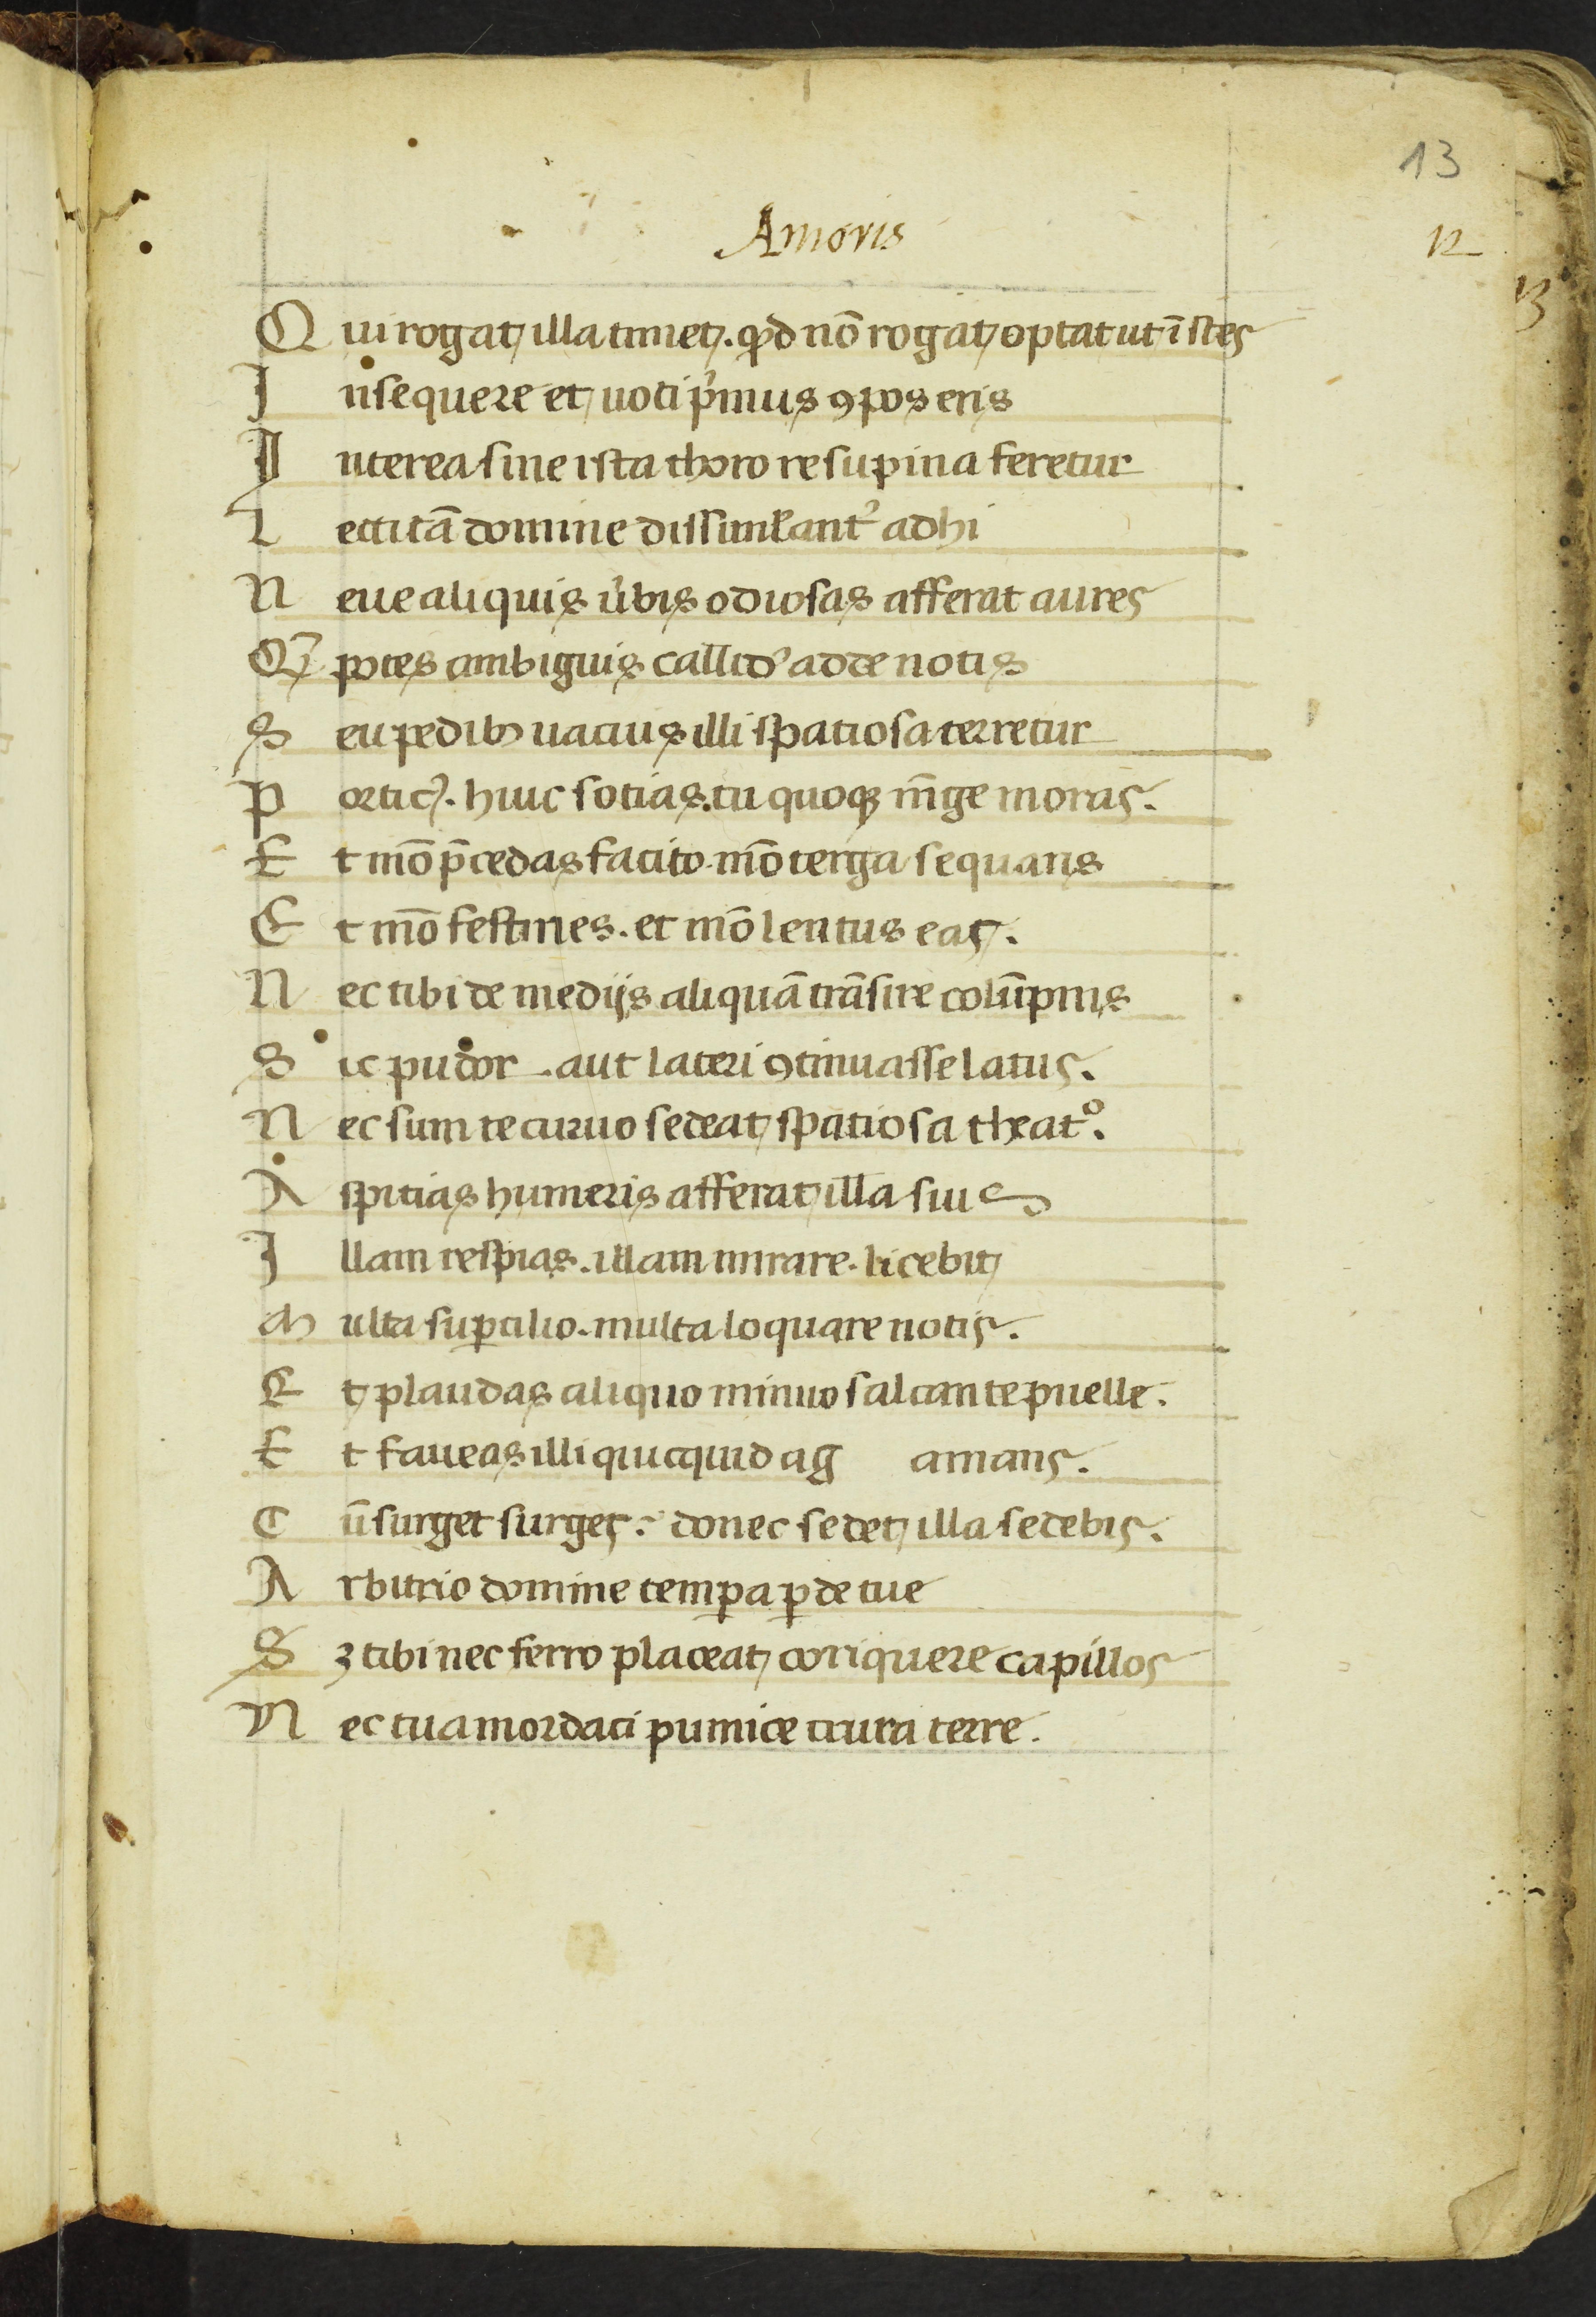 13
Amoris
12
13
Qui rogat illa timet. qđ nō rogat optat ut īstes
Insequere et uoti p'mus ꝯpos eris
Interea siue ista thoro resupina feretur
Lecticā domine dissimł'ant' adhi
Neue aliquis u'bis odiosas afferat aures
Qȝ potes ambiguis callid' adde notis
Seu pedibȝ uacuis illi spatiosa terretur
Portic'. huic sotias. tu quoqȝ iūge moras.
Et mō p̄cedas facito. mō terga sequaris
Et mō festines. et mō lentus eas.
Nec tibi de medijs aliquā trāsire colūpnis
Sic pudor. aut lateri ꝯtinuasse latus.
Nec sum te curuo sedeat spatiosa theatº.
Aspitias humeris afferat illa suis
Illam respias. illam mirare. licebit
Multa suꝑcilio. multa loquare notis.
Et plaudas aliquo minuo saltante puelle.
Et faueas illi quicquid ag amans.
Cū surget surges. donec sedet illa sedebis.
Arbitrio domine temꝑa ꝑde tue
Sȝ tibi nec ferro placeat toriquere capillos
Nec tua mordaci pumice crura terre.